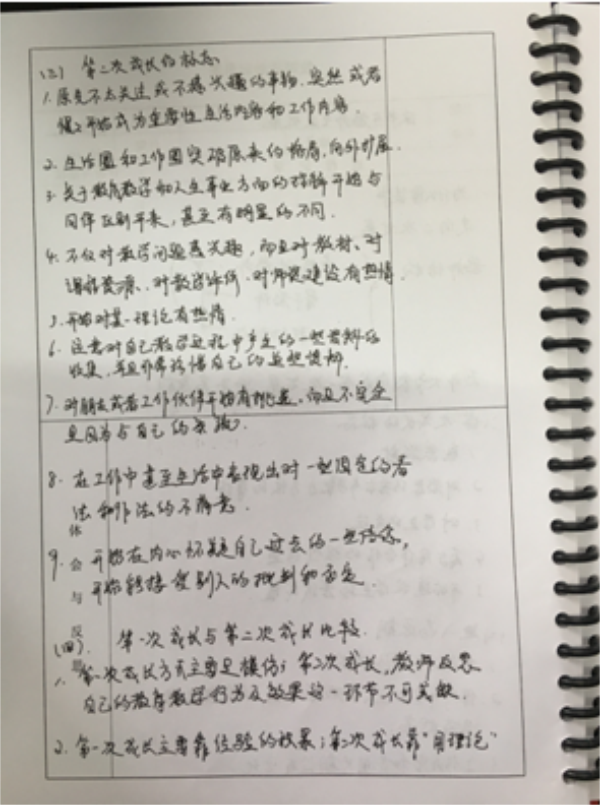 (三) 第二次成长的标志
1. 原先不太关注或不感兴趣的事物,突然或者
慢慢开始成为重要性生活内容和工作内容.
2. 生活圈和工作圈突破原来的格局,向外扩展.
3. 关于教育教学和人生事业方面的理解开始与
同伴区别开来,甚至有明显的不同.
4. 不仅对教学问题感兴趣,而且对教材、对
课程资源、对教学评价、对师资建设有热情.
5. 开始对某一理论有热情.
6. 注意对自己教学过程中产生的一些资料的
收集,并且非常珍惜自己的这些资料.
7. 对朋友或者工作伙伴开始有挑选,而且不完全
是因为与自己的
8. 在工作中甚至生活中表现出对一些固定的看
法和作法的不满意.
9. 开始在内心怀疑自己过去的一些信念,
开始能接受别人的批判和否定.
体
会
与
反
思
(四). 第一次成长与第二次成长比较.
1. 第一次成长方式主要是模仿;第二次成长,教师反思
自己的教育教学行为及效果这一环节不可或缺.
2. 第一次成长主要靠经验的积累;第二次成长靠“用理论”